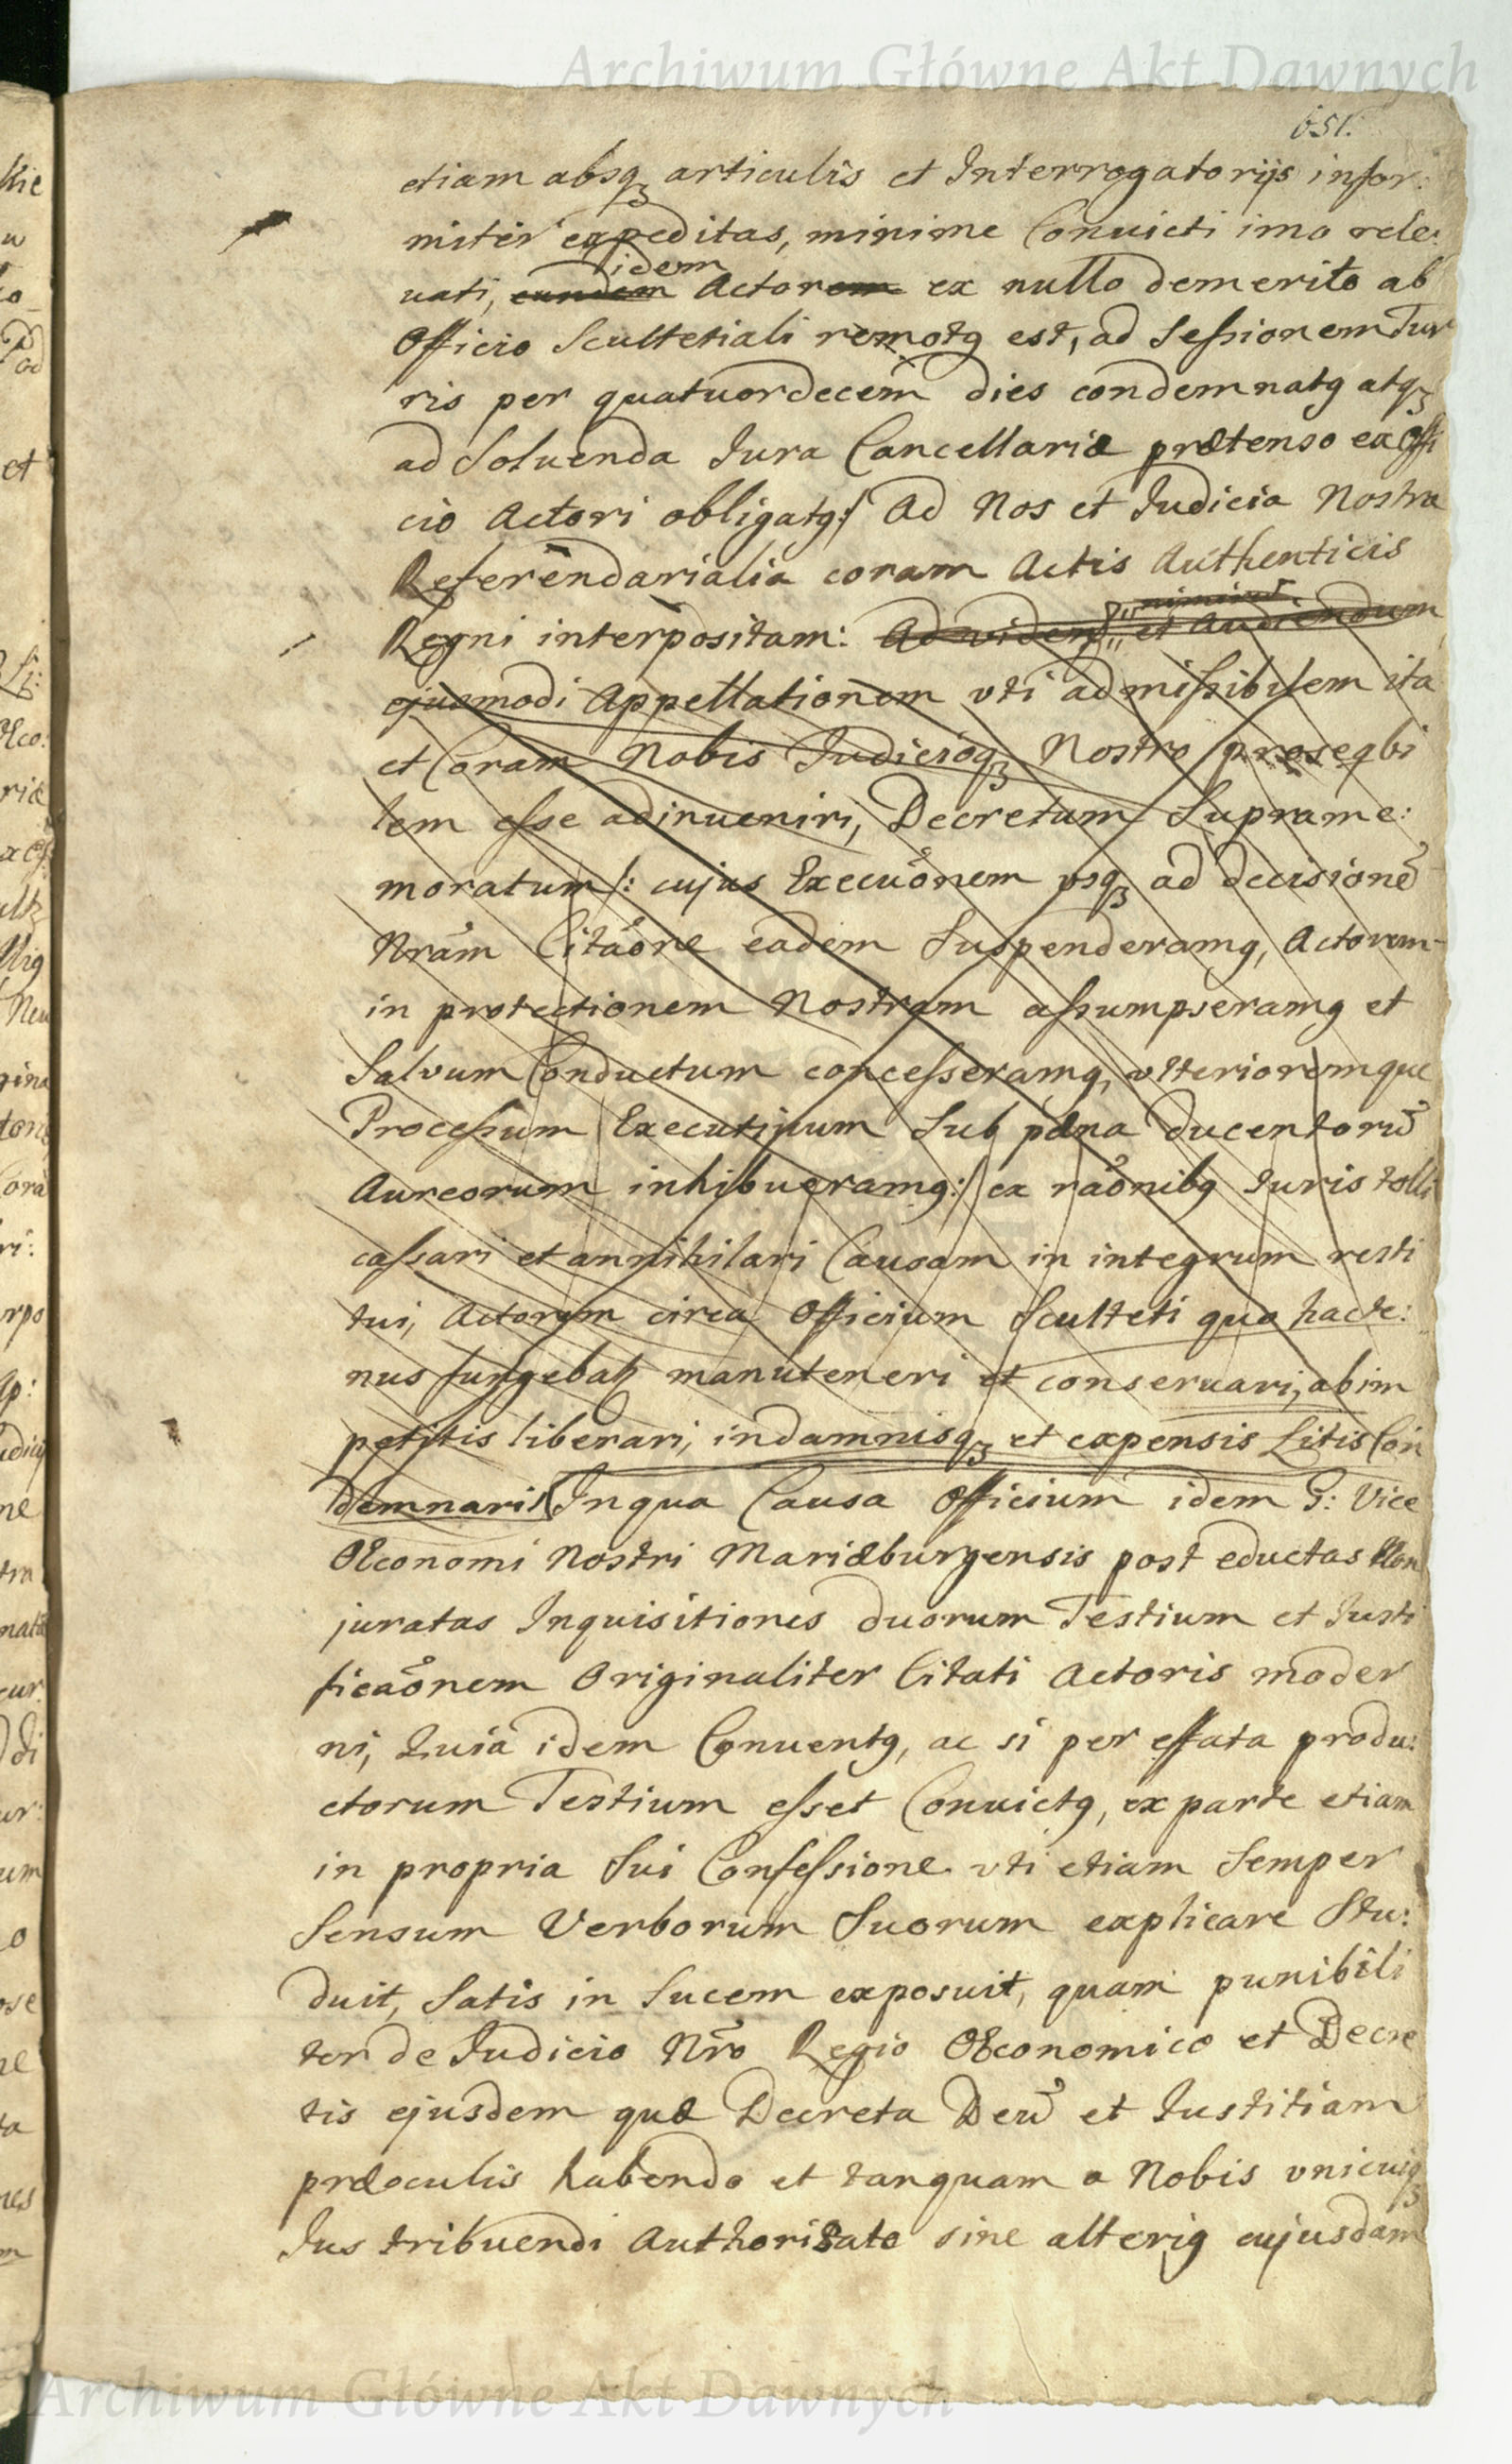 Archiwum Główne Akt Dawnych
651.
etiam absqꝫ articulis et Interrogatorijs infor:
miter expeditas, minime Conuicti imo rele:
idem
uati, eundem Actorem ex nullo demerito ab
Officio Scultetiali remotꝯ est, ad Sessionem Tur
ris per quatuordecem dies condemnatꝯ atqꝫ
ad Soluenda Jura Cancellariæ prætenso ex Offi
cio Actori obligatꝯ:/ Ad Nos et Judicia Nostra
Referendarialia coram Actis Authenticis
nimirum
Regni interpositam: Ad videnđ et Audiendum
ejusmodi Appellationem vti admissibilem ita
et Coram Nobis Judicioqꝫ Nostro proseqbi
lem esse adinueniri, Decretum Suprame:
moratum/: cujus Execuõnem vsqꝫ ad decisionẽ
Nrãm Citãõne eadem Suspenderamꝯ, Actorem
in protectionem Nostram assumpseramꝯ et
Salvum Conductum concesseramꝯ, vlterioremque
Processum Executivum Sub pæna ducentorũ
Aureorum inhibueramꝯ:/ ex raõnibꝯ Juris tolli
cassari et annihilari Causam in integrum resti
tui, Actorem circa Officium Sculteti quo hacte:
nus fungebatꝶ manuteneri et conseruari, ab im
petitis liberari, in damnisqꝫ et expensis Litis Con
demnari/ In qua Causa Officium idem G: Vice
Œconomi Nostri Mariæburgensis post eductas Non
juratas Inquisitiones duorum Testium et Justi
ficaõnem Originaliter Citati Actoris moder
ni, Quia idem Conuentꝯ, ac si per effata produ:
ctorum Testium esset Conuictꝯ, ex parte etiam
in propria Sui Confessione vti etiam Semper
Sensum Verborum Suorum explicare Stu:
duit, Satis in Lucem exposuit, quam punibili
ter de Judicio Nr̃o Regio Œconomico et Decre
tis ejusdem quæ Decreta Deũ et Justitiam
præoculis habendo et tanquam a Nobis vnicuiqꝫ
Jus tribuendi Authoritate sine alteriꝯ cujusdam
Archiwum Główne Akt Dawnych